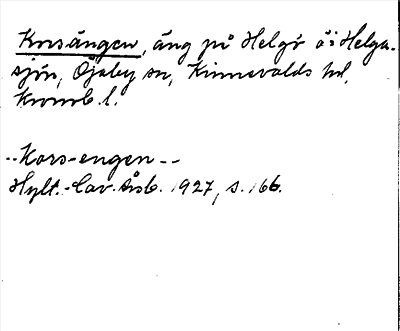 Korsängen, äng på Helgö ö i Helga-
sjön, Öjaby sn, Kinnevalds hd,
Kronob. l.
--Kors-engen--
Hylt.-Cav. Årsb. 1927, s. 166.